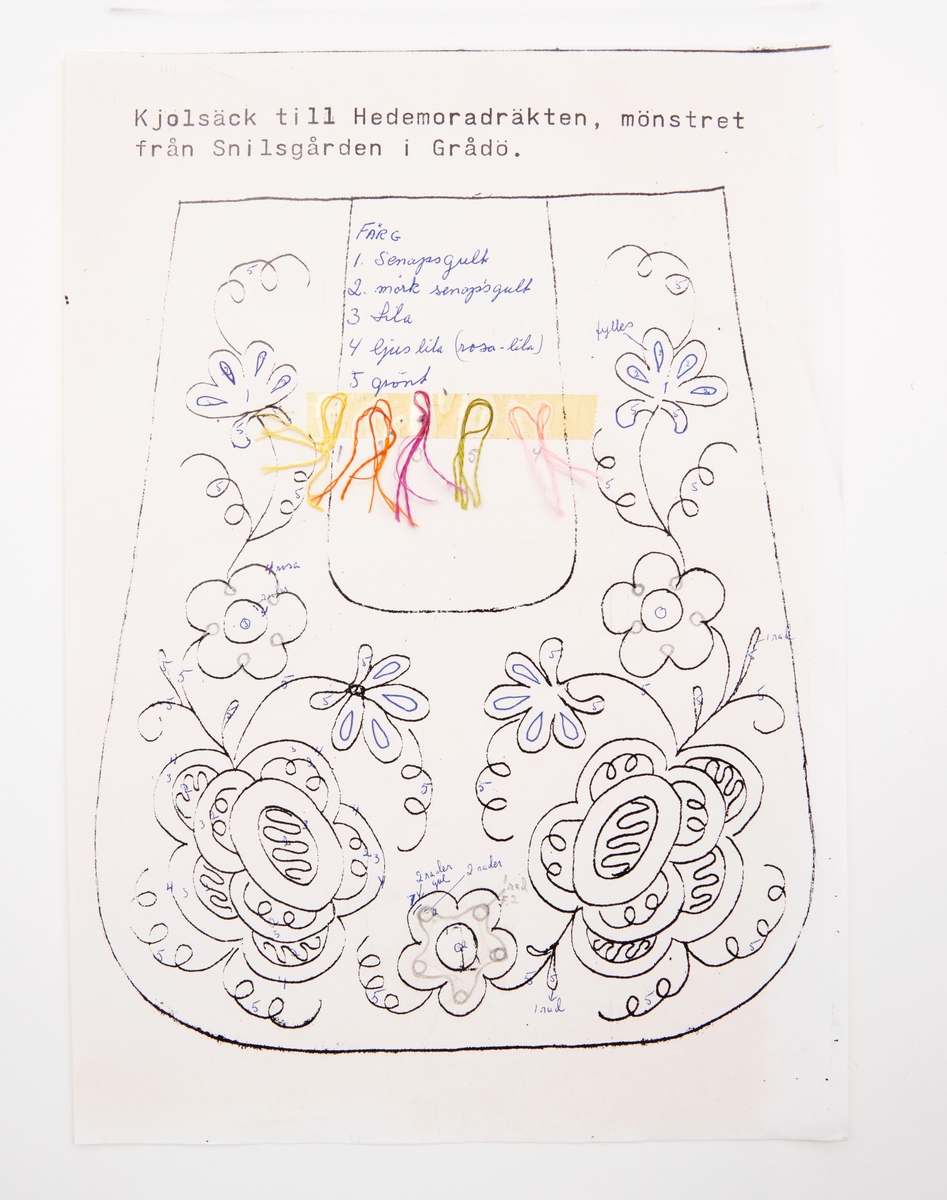 Kjolsäck till Hedemoradräkten, mönstret
från Snilsgården i Grådö.
FÄRG
1. Senapsgult
2. mörk senapsgult
3 Lila
4 ljus lila (rosa-lila)
5 grönt
fylles
5
5
5
5
5
5
4 rosa
1 rad
5
5
5
5
5
5
2 rader
gul
2 rader
1 rad
5
5
5
5
5
1 rad